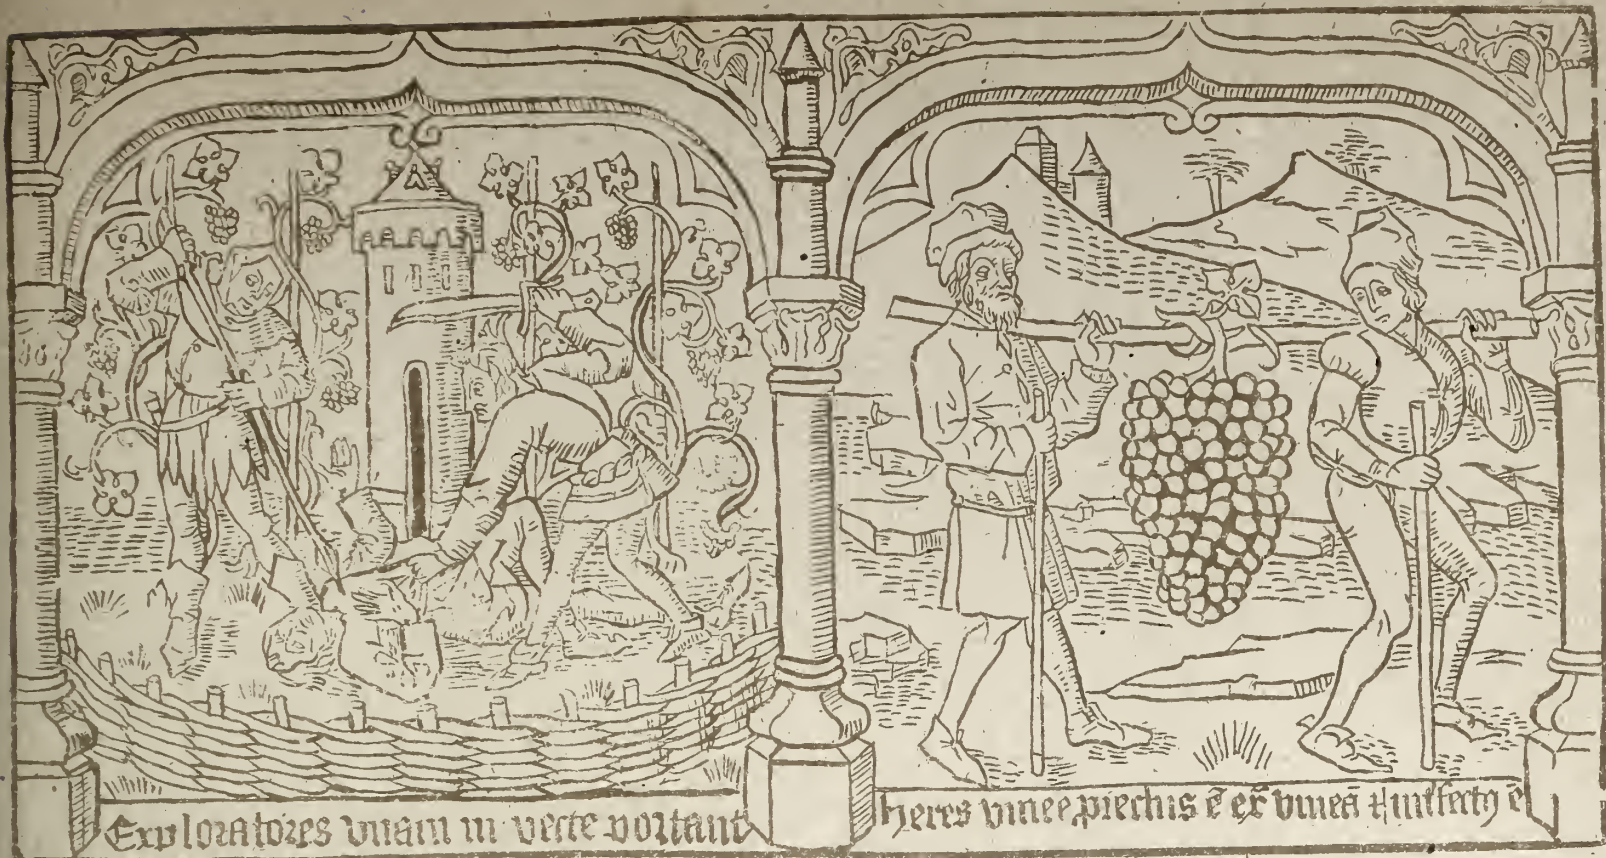 Exploratores vuam in vecte portant
heres vinee proiectus ē ex̄ vineā ⁊ intfectꝰ ē